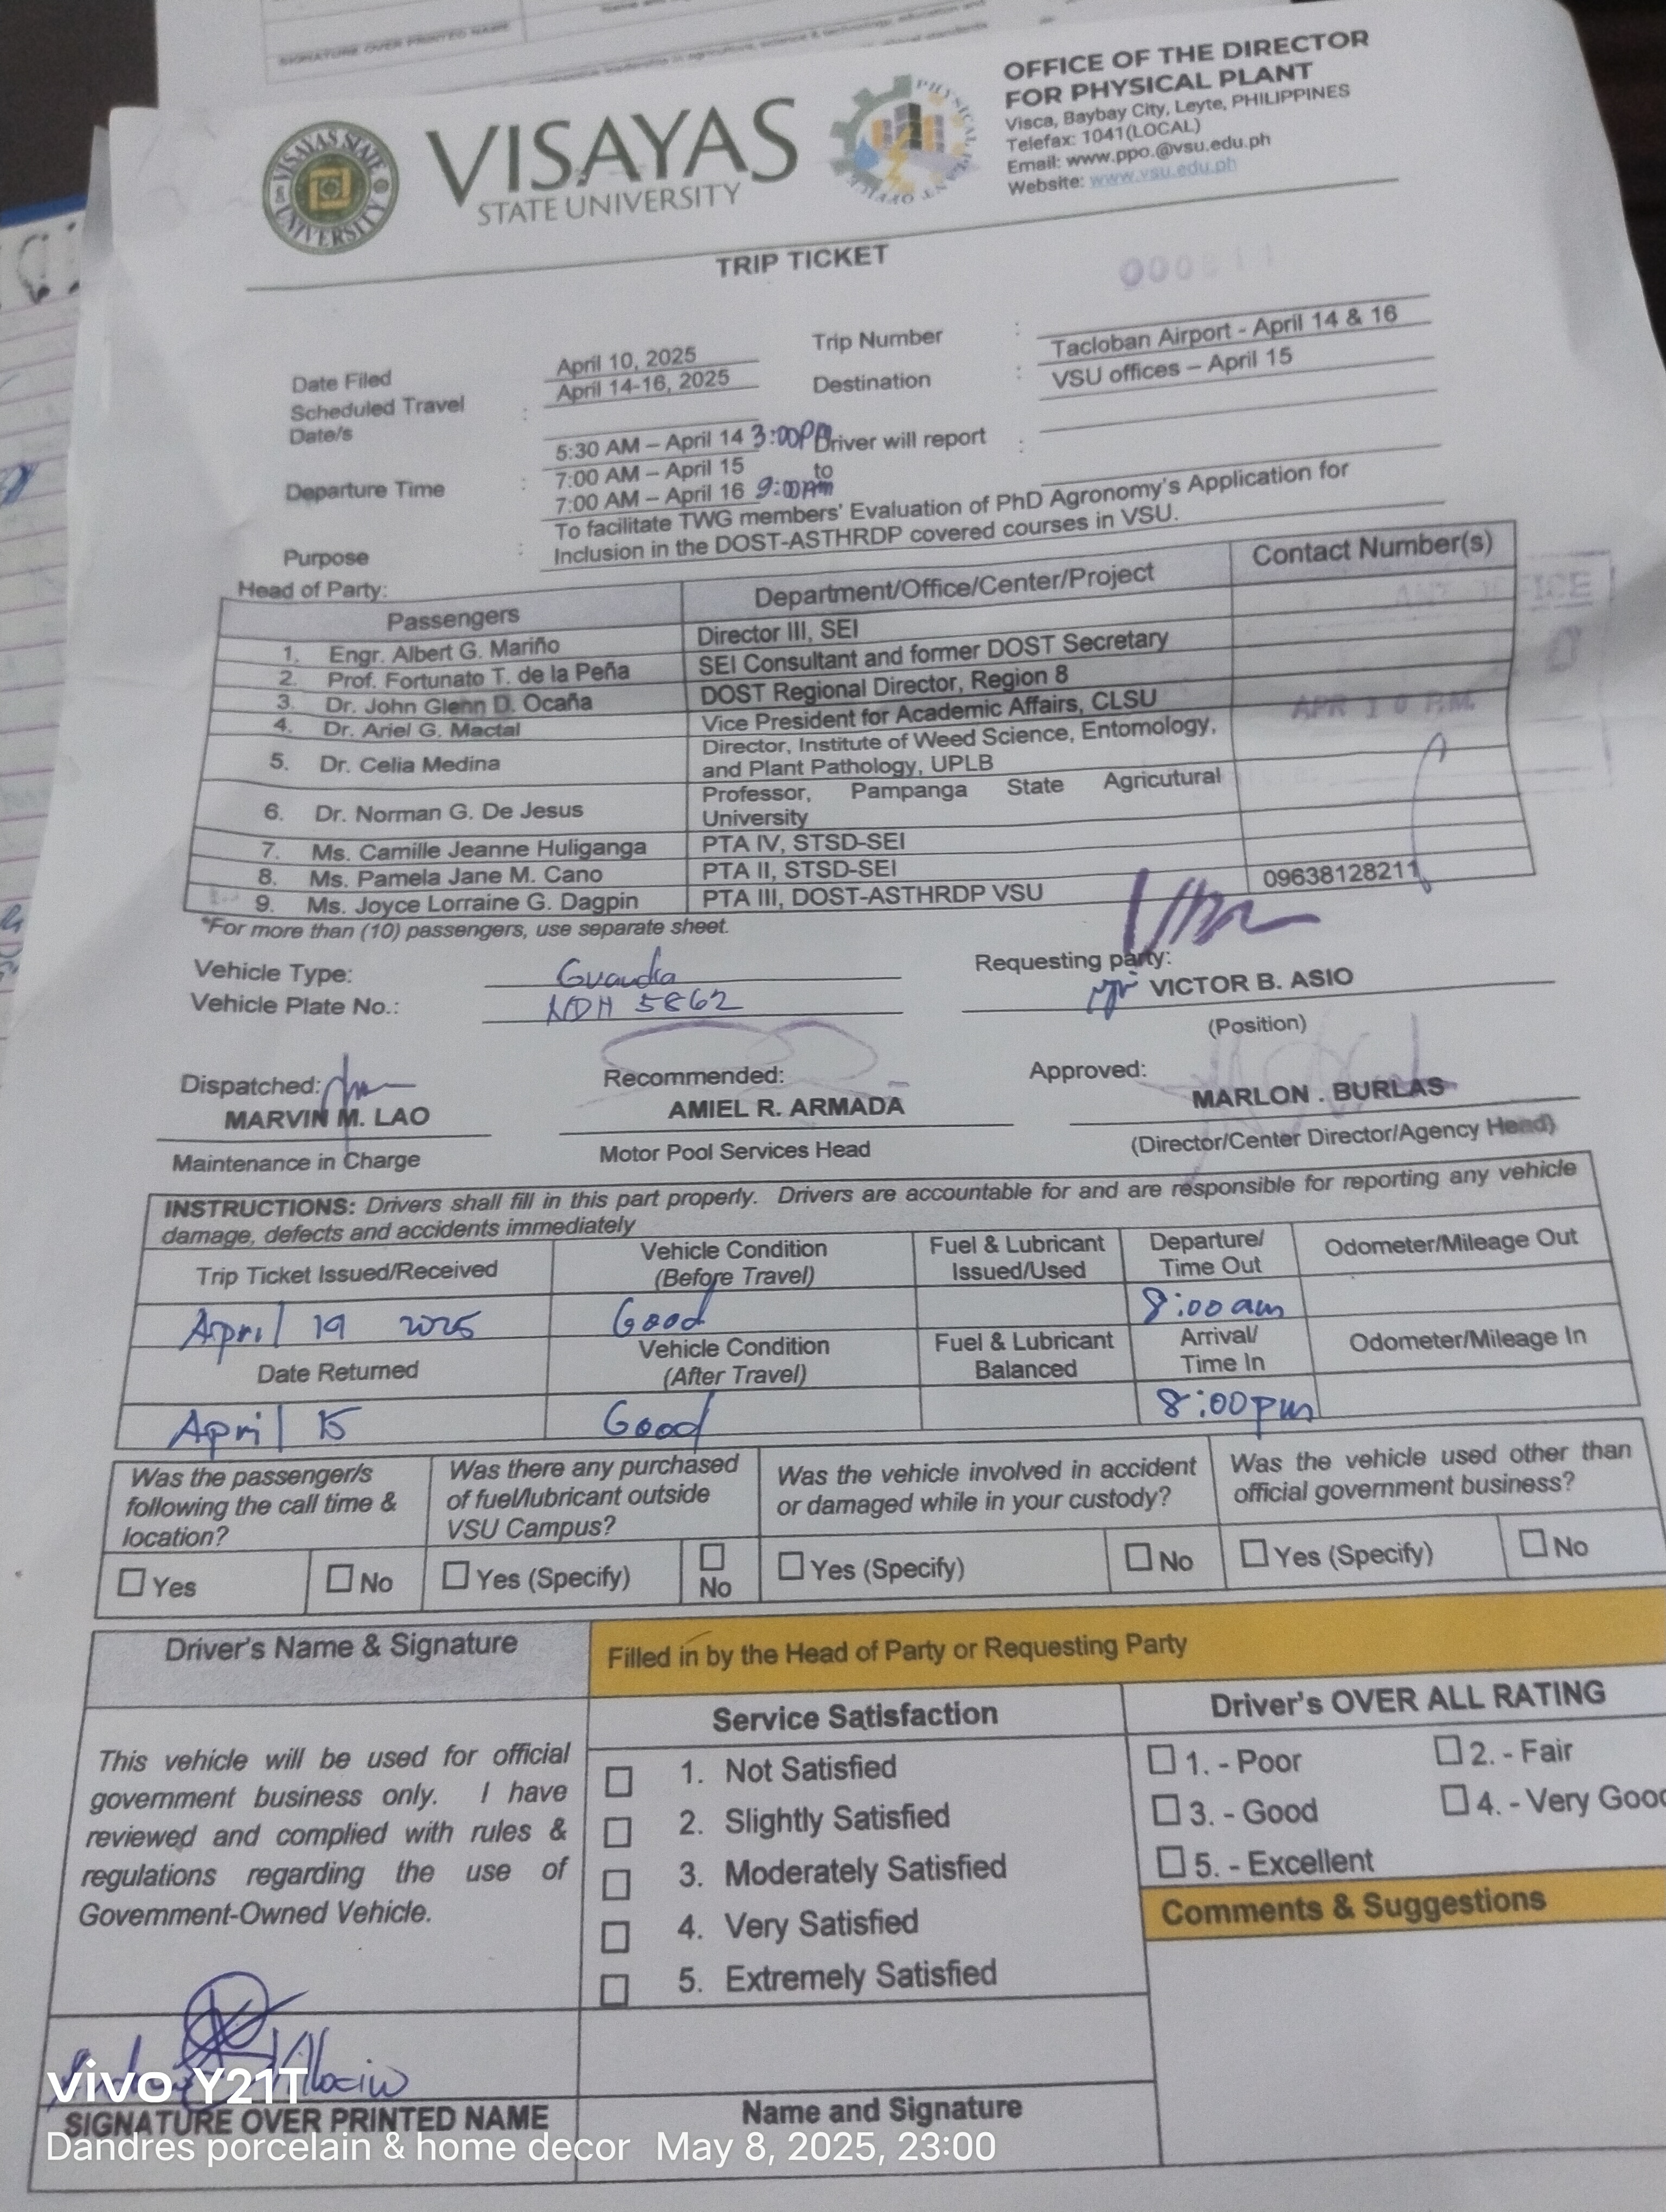 SIGNATURE OVER PRINTED NAME
VISAYAS STATE UNIVERSITY
VISAYAS
STATE UNIVERSITY
PHYSICAL PLANT OFFICE
OFFICE OF THE DIRECTOR
FOR PHYSICAL PLANT
Visca, Baybay City, Leyte, PHILIPPINES
Telefax: 1041(LOCAL)
Email: www.ppo.@vsu.edu.ph
Website: www.vsu.edu.ph
TRIP TICKET
Date Filed April 10, 2025 Trip Number :
Scheduled Travel Date/s : April 14-16, 2025 Destination : Tacloban Airport - April 14 & 16
VSU offices – April 15
Departure Time : 5:30 AM – April 14 3:00PM Driver will report :
7:00 AM – April 15 to
7:00 AM – April 16 9:00am
Purpose : To facilitate TWG members' Evaluation of PhD Agronomy's Application for
Inclusion in the DOST-ASTHRDP covered courses in VSU.
Head of Party:
Passengers Department/Office/Center/Project Contact Number(s)
1. Engr. Albert G. Mariño Director III, SEI
2. Prof. Fortunato T. de la Peña SEI Consultant and former DOST Secretary
3. Dr. John Glenn D. Ocaña DOST Regional Director, Region 8
4. Dr. Ariel G. Mactal Vice President for Academic Affairs, CLSU
5. Dr. Celia Medina Director, Institute of Weed Science, Entomology,
and Plant Pathology, UPLB
6. Dr. Norman G. De Jesus Professor, Pampanga State Agricutural
University
7. Ms. Camille Jeanne Huliganga PTA IV, STSD-SEI
8. Ms. Pamela Jane M. Cano PTA II, STSD-SEI
9. Ms. Joyce Lorraine G. Dagpin PTA III, DOST-ASTHRDP VSU 09638128211
APR 10 P.M.
*For more than (10) passengers, use separate sheet.
Vehicle Type: Requesting party:
Vehicle Plate No.: 5862 VICTOR B. ASIO
(Position)
Dispatched: Recommended: Approved:
MARVIN M. LAO AMIEL R. ARMADA MARLON . BURLAS
Maintenance in Charge Motor Pool Services Head (Director/Center Director/Agency Head)
INSTRUCTIONS: Drivers shall fill in this part properly. Drivers are accountable for and are responsible for reporting any vehicle
damage, defects and accidents immediately
Trip Ticket Issued/Received Vehicle Condition (Before Travel) Fuel & Lubricant Issued/Used Departure/ Time Out Odometer/Mileage Out
April 2025 Good 8:00am
Date Returned Vehicle Condition (After Travel) Fuel & Lubricant Balanced Arrival/ Time In Odometer/Mileage In
April 15 Good 8:00pm
Was the passenger/s following the call time & location? Was there any purchased of fuel/lubricant outside VSU Campus? Was the vehicle involved in accident or damaged while in your custody? Was the vehicle used other than official government business?
Yes No Yes (Specify) No Yes (Specify) No Yes (Specify) No
Driver's Name & Signature Filled in by the Head of Party or Requesting Party
Service Satisfaction Driver's OVER ALL RATING
This vehicle will be used for official
government business only. I have
reviewed and complied with rules &
regulations regarding the use of
Government-Owned Vehicle.
1. Not Satisfied
2. Slightly Satisfied
3. Moderately Satisfied
4. Very Satisfied
5. Extremely Satisfied
1. - Poor 2. - Fair
3. - Good 4. - Very Good
5. - Excellent
Comments & Suggestions
SIGNATURE OVER PRINTED NAME Name and Signature
vivo Y21T
Dandres porcelain & home decor May 8, 2025, 23:00